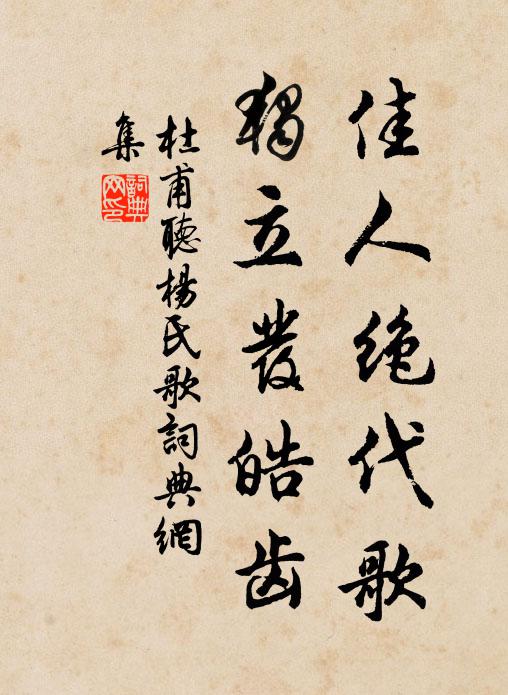 佳人绝代歌
獨立發皓齿
杜甫聽楊氏歌詞典網
集
詞典
网印